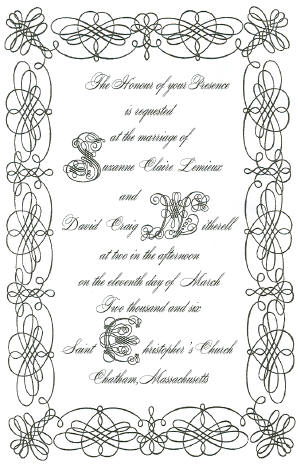 The Honour of your Presence
is requested
at the marriage of
Suzanne Claire Lemieux
and
David Craig Witherell
at two in the afternoon
on the eleventh day of March
Two thousand and six
Saint Christopher's Church
Chatham, Massachusetts